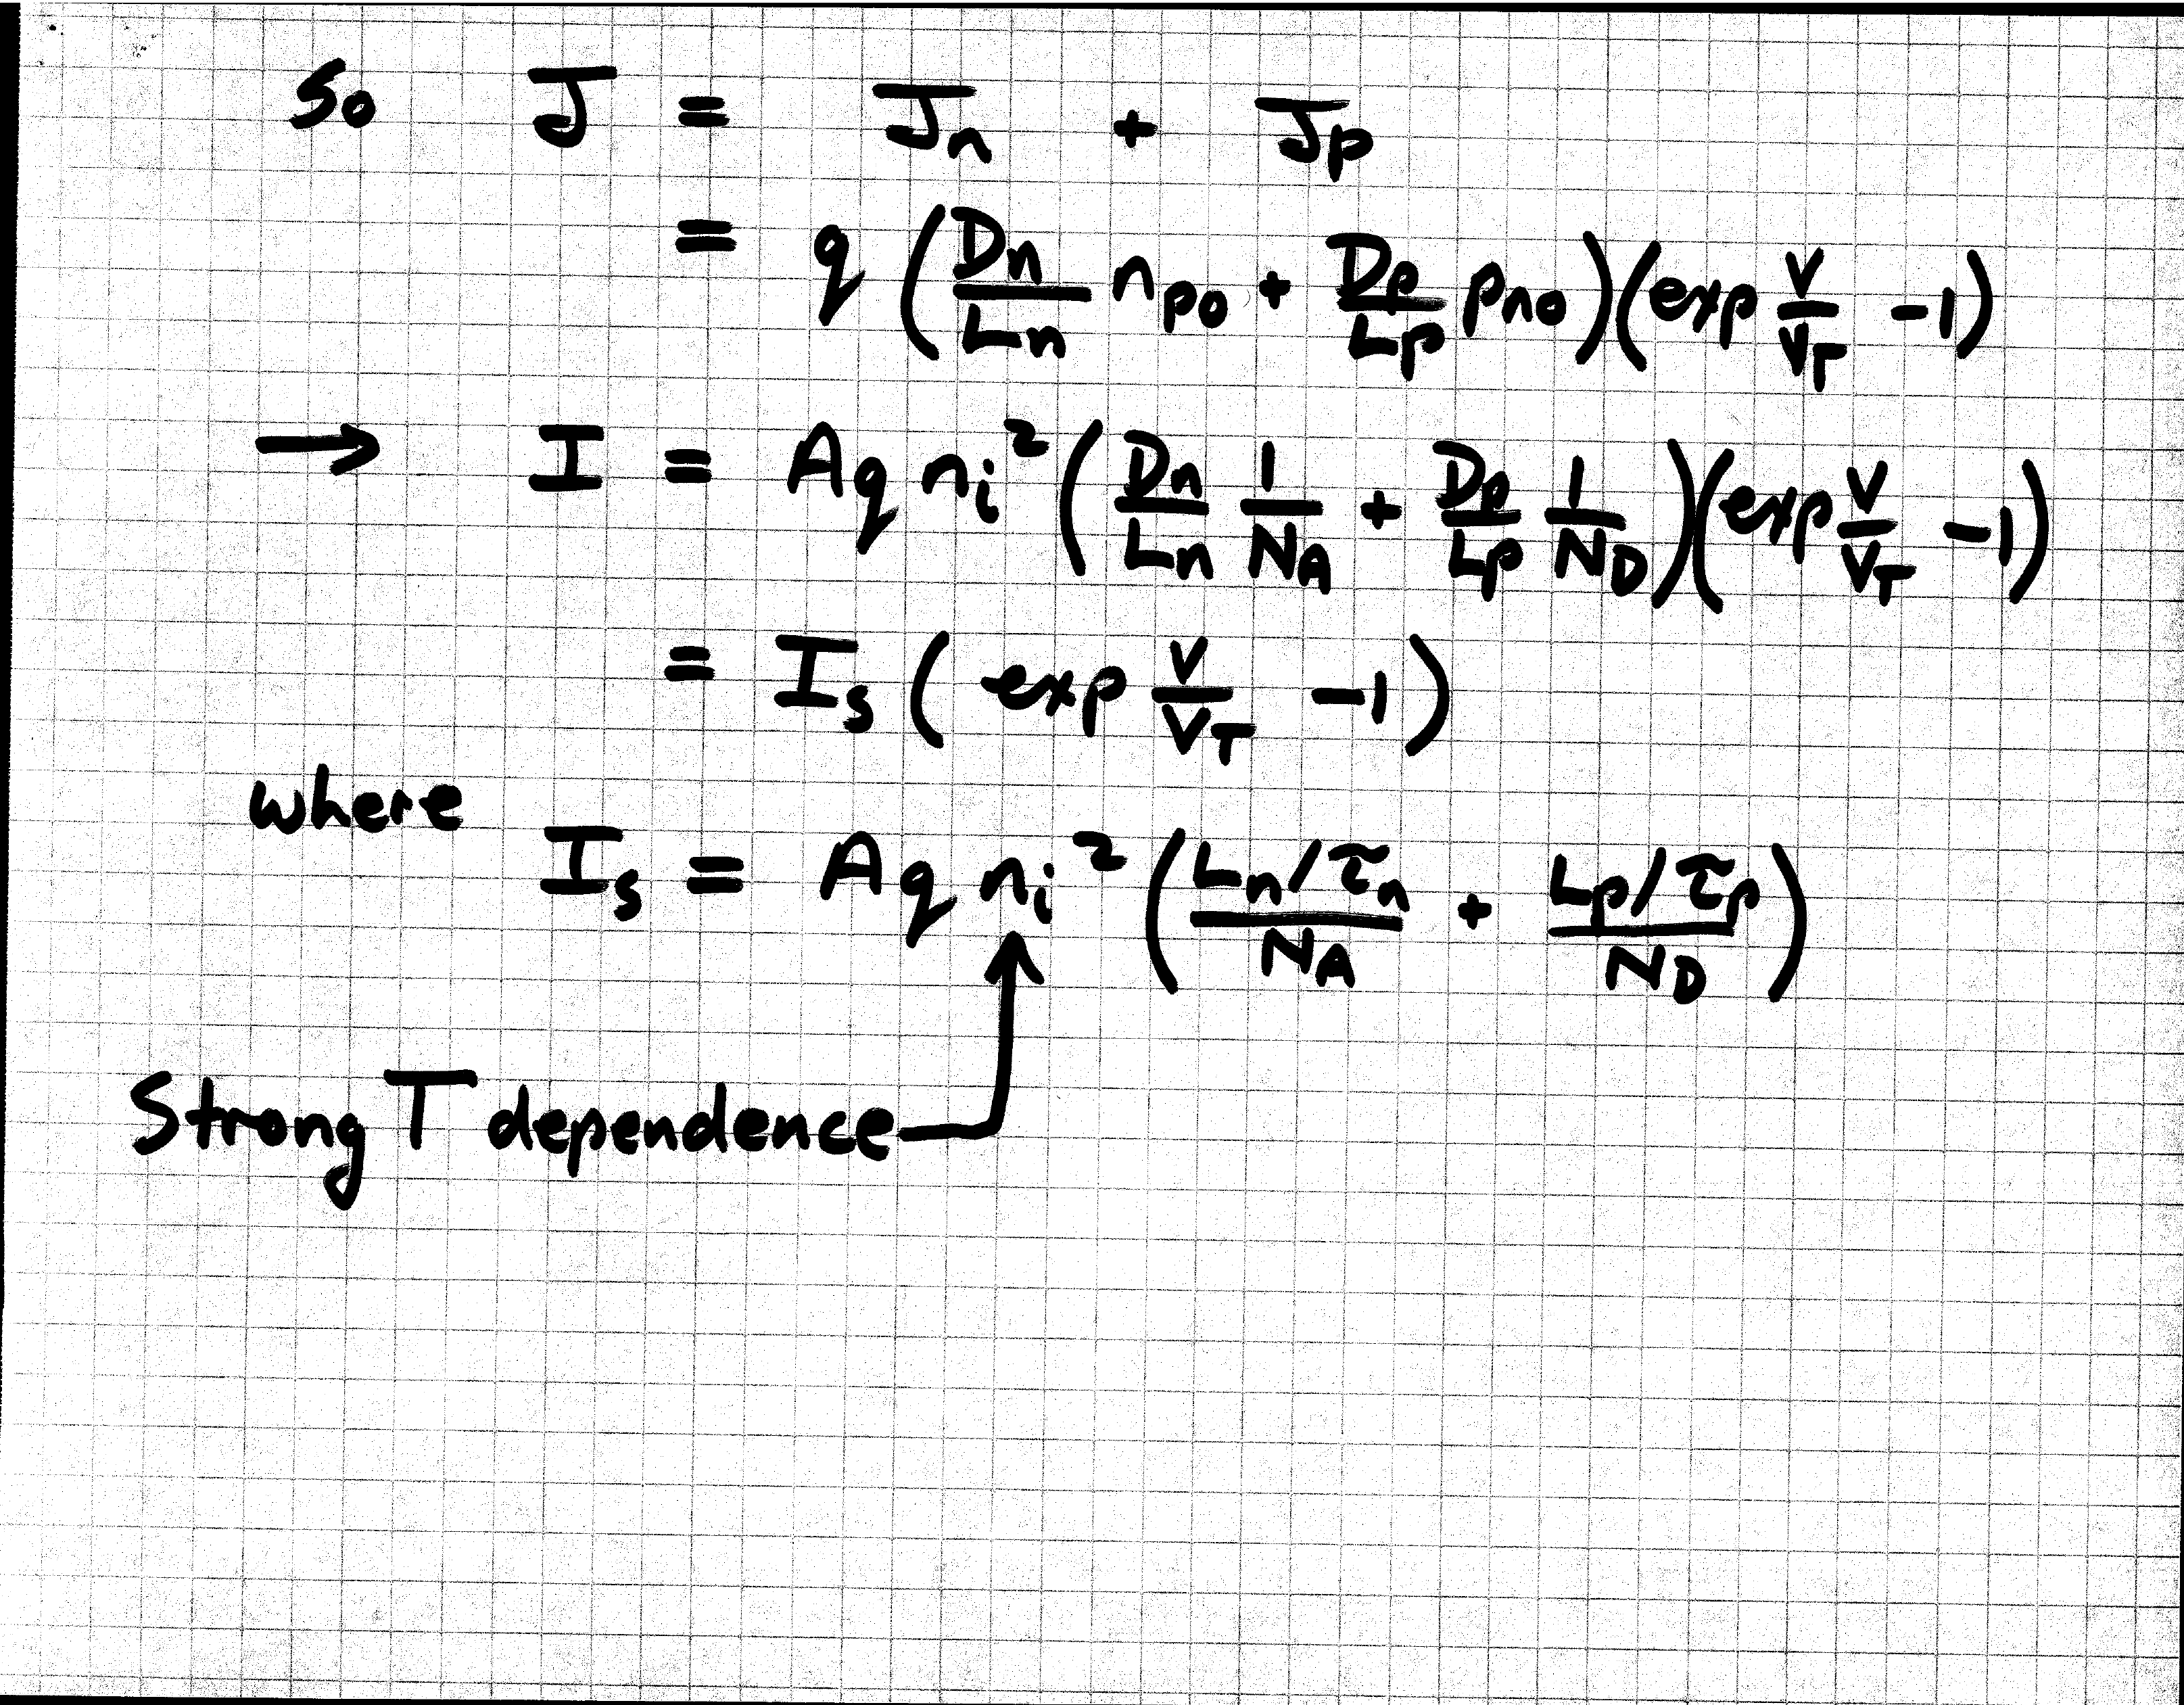 So J = Jn + Jp
= q (Dn/Ln npo + Dp/Lp pno)(exp V/VT - 1)
→ I = Aq ni² (Dn/Ln 1/NA + Dp/Lp 1/ND)(exp V/VT - 1)
= Is (exp V/VT - 1)
where
Is = Aq ni² ((Ln/τn)/NA + (Lp/τp)/ND)
Strong T dependence